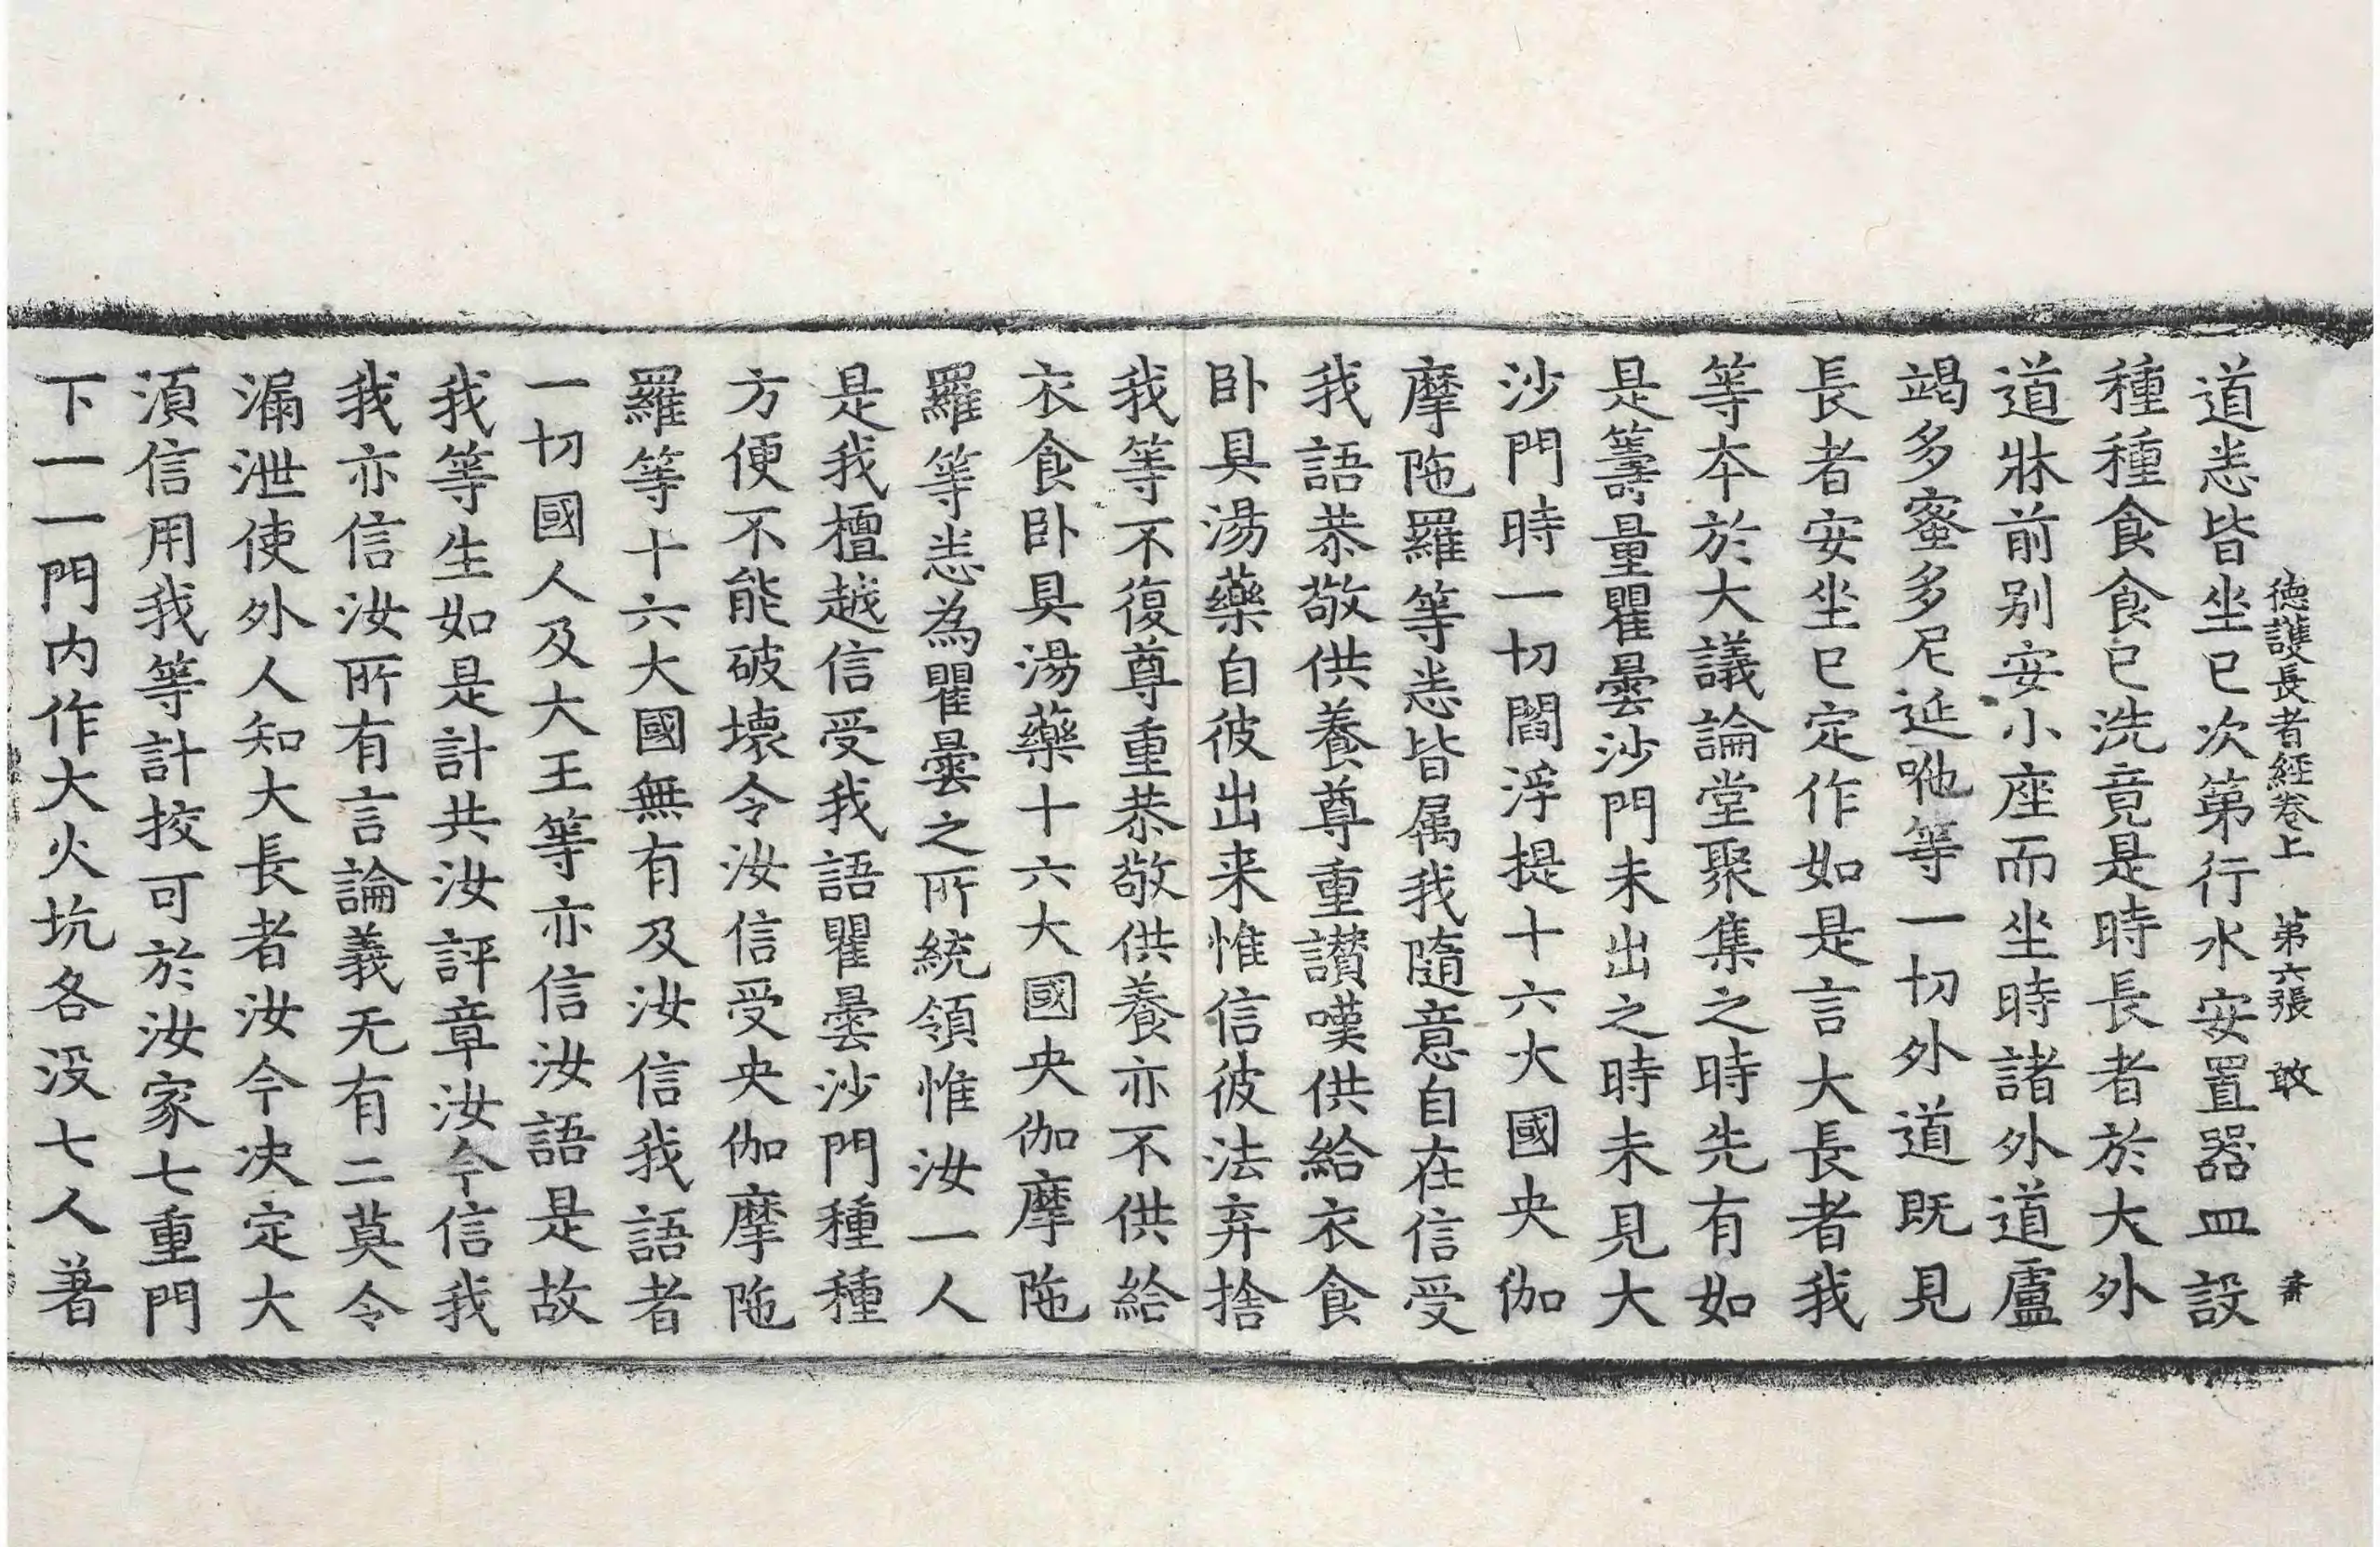 德護長者經卷上　第六張　敢
道悉皆坐已次第行水安置器皿設
種種食食已洗竟是時長者於大外
道牀前别安小座而坐時諸外道盧
竭多蜜多尼延吔等一切外道既見
長者安坐已定作如是言大長者我
等本於大議論堂聚集之時先有如
是籌量瞿曇沙門未出之時未見大
沙門時一切閻浮提十六大國央伽
摩陁羅等悉皆属我隨意自在信受
我語恭敬供養尊重讃嘆供給衣食
卧具湯藥自彼出来惟信彼法弃捨
我等不復尊重恭敬供養亦不供給
衣食卧具湯藥十六大國央伽摩陁
羅等悉為瞿曇之所統領惟汝一人
是我檀越信受我語瞿曇沙門種種
方便不能破壞令汝信受央伽摩陁
羅等十六大國無有及汝信我語者
一切國人及大王等亦信汝語是故
我等生如是計共汝評章汝今信我
我亦信汝所有言論義无有二莫令
漏泄使外人知大長者汝今决定大
湏信用我等計挍可於汝家七重門
下一一門内作大火坑各没七人著